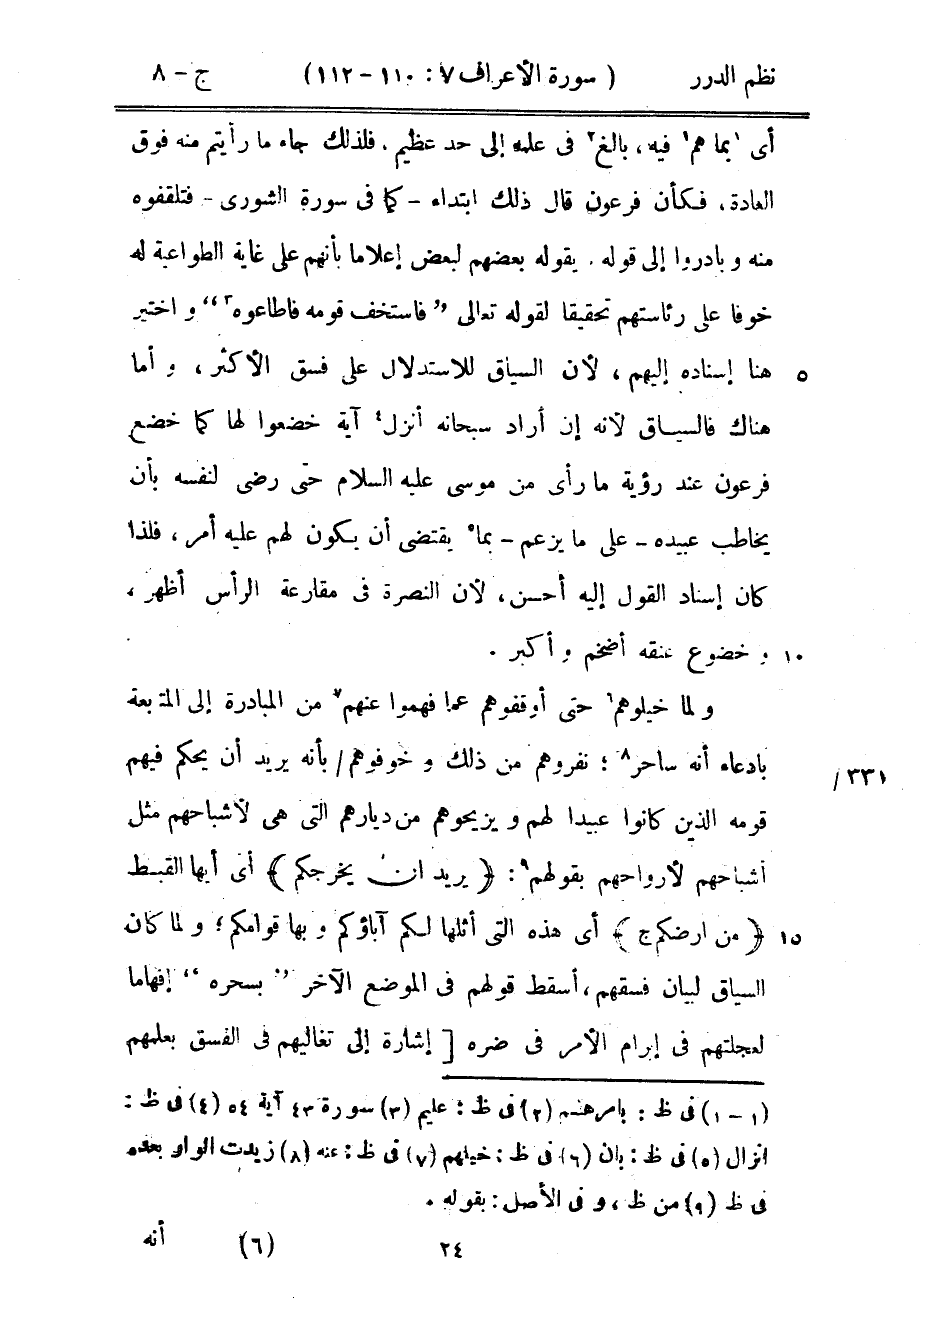 نظم الدرر ( سورة الأعراف ٧ : ١١٠ – ١١٢ ) ج – ٨
أى ١بما هم١ فيه ، بالغ٢ فى علمه إلى حد عظيم ، فلذلك جاء ما رأيتم منه فوق
العادة ، فكأن فرعون قال ذلك ابتداء – كما فى سورة الشورى – فتلقفوه
منه و بادروا إلى قوله . يقوله بعضهم لبعض إعلاما بأنهم على غاية الطواعية له
خوفا على رئاستهم تحقيقا لقوله تعالى " فاستخف قومه فاطاعوه٣ " و اختير
٥ هنا إسناده إليهم ، لأن السياق للاستدلال على فسق الأكثر ، و أما
هناك فالسياق لأنه إن أراد سبحانه أنزل٤ آية خضعوا لها كما خضع
فرعون عند رؤية ما رأى من موسى عليه السلام حتى رضى لنفسه بأن
يخاطب عبيده – على ما يزعم – بما٥ يقتضى أن يكون لهم عليه أمر ، فلذا
كان إسناد القول إليه أحسن ، لأن النصرة فى مقارعة الرأس أظهر ،
١٠ و خضوع عنقه أضخم و أكبر .
و لما خيلوهم٦ حتى أوقفوهم عما فهموا عنهم٧ من المبادرة إلى المتابعة
بادعاء أنه ساحر٨ ؛ نفروهم من ذلك و خوفوهم / بأنه يريد أن يحكم فيهم
/ ٣٣١
قومه الذين كانوا عبيدا لهم و يزيحوهم من ديارهم التى هى لأشباحهم مثل
أشباحهم لأرواحهم بقولهم٩ : ﴿ يريد ان يخرجكم ﴾ أى أيها القبط
١٥ ﴿ من ارضكم ج ﴾ أى هذه التى أثلها لكم آباؤكم و بها قوامكم ؛ و لما كان
السياق لبيان فسقهم ، أسقط قولهم فى الموضع الآخر " بسحره " إفهاما
لعجلتهم فى إبرام الأمر فى ضره [ إشارة إلى تغاليهم فى الفسق بعلمهم
(١ – ١) فى ظ : بامرهم (٢) فى ظ : عليم (٣) سورة ٤٣ آية ٥٤ (٤) فى ظ :
انزال (٥) فى ظ : بان (٦) فى ظ : خيلهم (٧) فى ظ : عنه (٨) زيدت الواو بعده
فى ظ (٩) من ظ ، و فى الأصل : بقوله .
٢٤ (٦) أنه